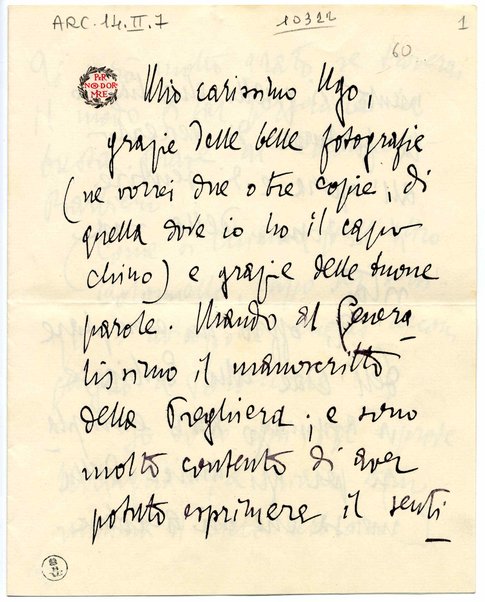 ARC.14.II.7
10322
1
60
PER
NON DOR
MIRE
Mio carissimo Ugo,
grazie delle belle fotografie
(ne vorrei due o tre copie, di
quella dove io ho il capo
chino) e grazie delle buone
parole. Mando al Genera
lissimo il manoscritto
della Preghiera; e sono
molto contento di aver
potuto esprimere il senti